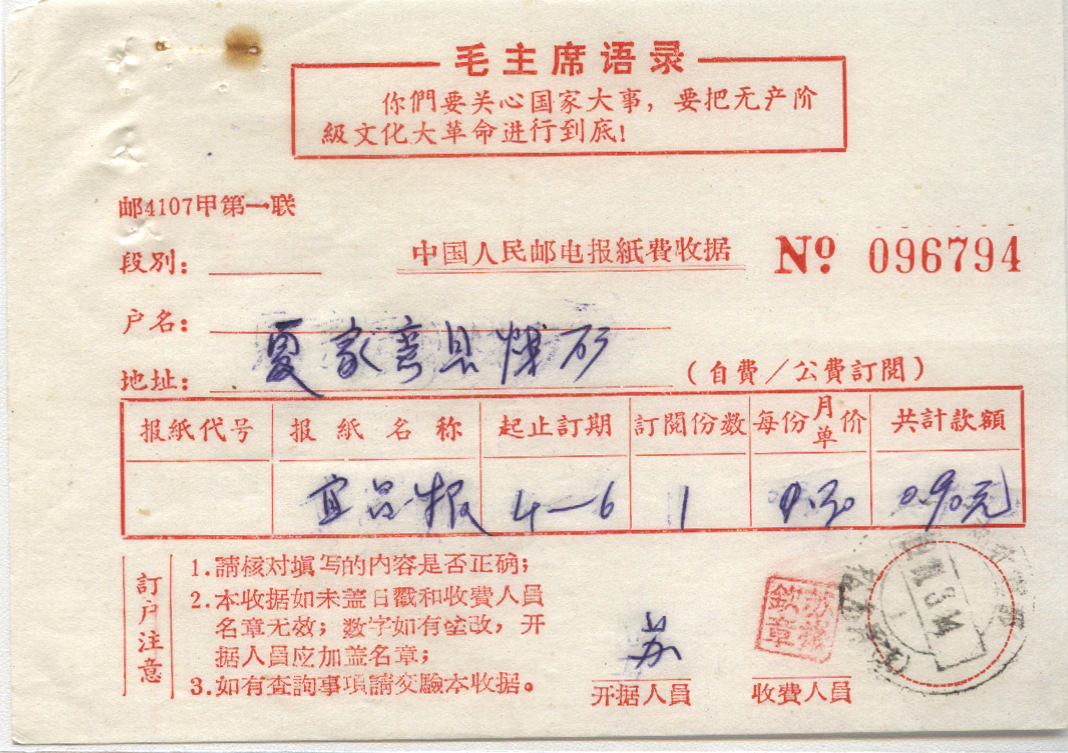 毛主席语录
你們要关心国家大事，要把无产阶
級文化大革命进行到底！
邮4107甲第一联
段別：
中国人民邮电报紙費收据
№ 096794
户名：
夏家 县煤矿
地址：
（自費／公費訂閱）
报紙代号 报紙名称 起止訂期 訂閱份数 每份月单价 共計款額
宜昌报 4—6 1 0.30 0.90元
訂户注意
1.請核对填写的内容是否正确；
2.本收据如未盖日戳和收費人員
名章无效；数字如有塗改，开
据人員应加盖名章；
3.如有查詢事項請交驗本收据。
苏
开据人員
收費人員